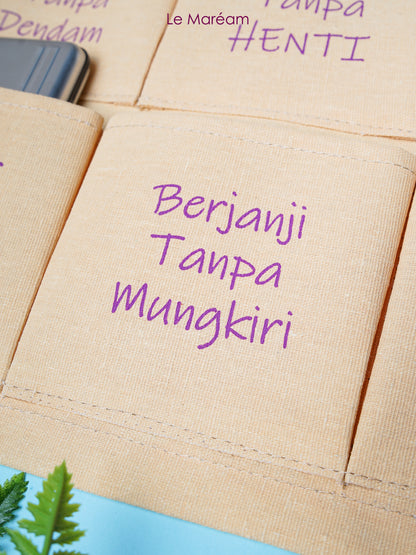 Le Maréam
Tanpa
Dendam
Tanpa
HENTI
Berjanji
Tanpa
Mungkiri